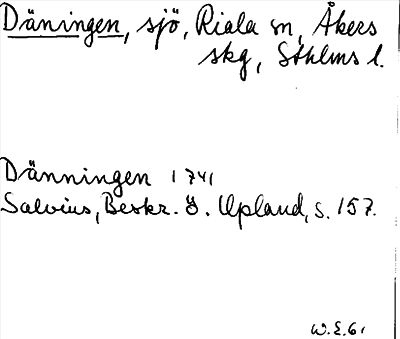 Däningen, sjö, Riala sn, Åkers
skg, Sthlms l.
Dänningen 1741
Salvius, Beskr. ö. Upland, s. 157.
W.E.61